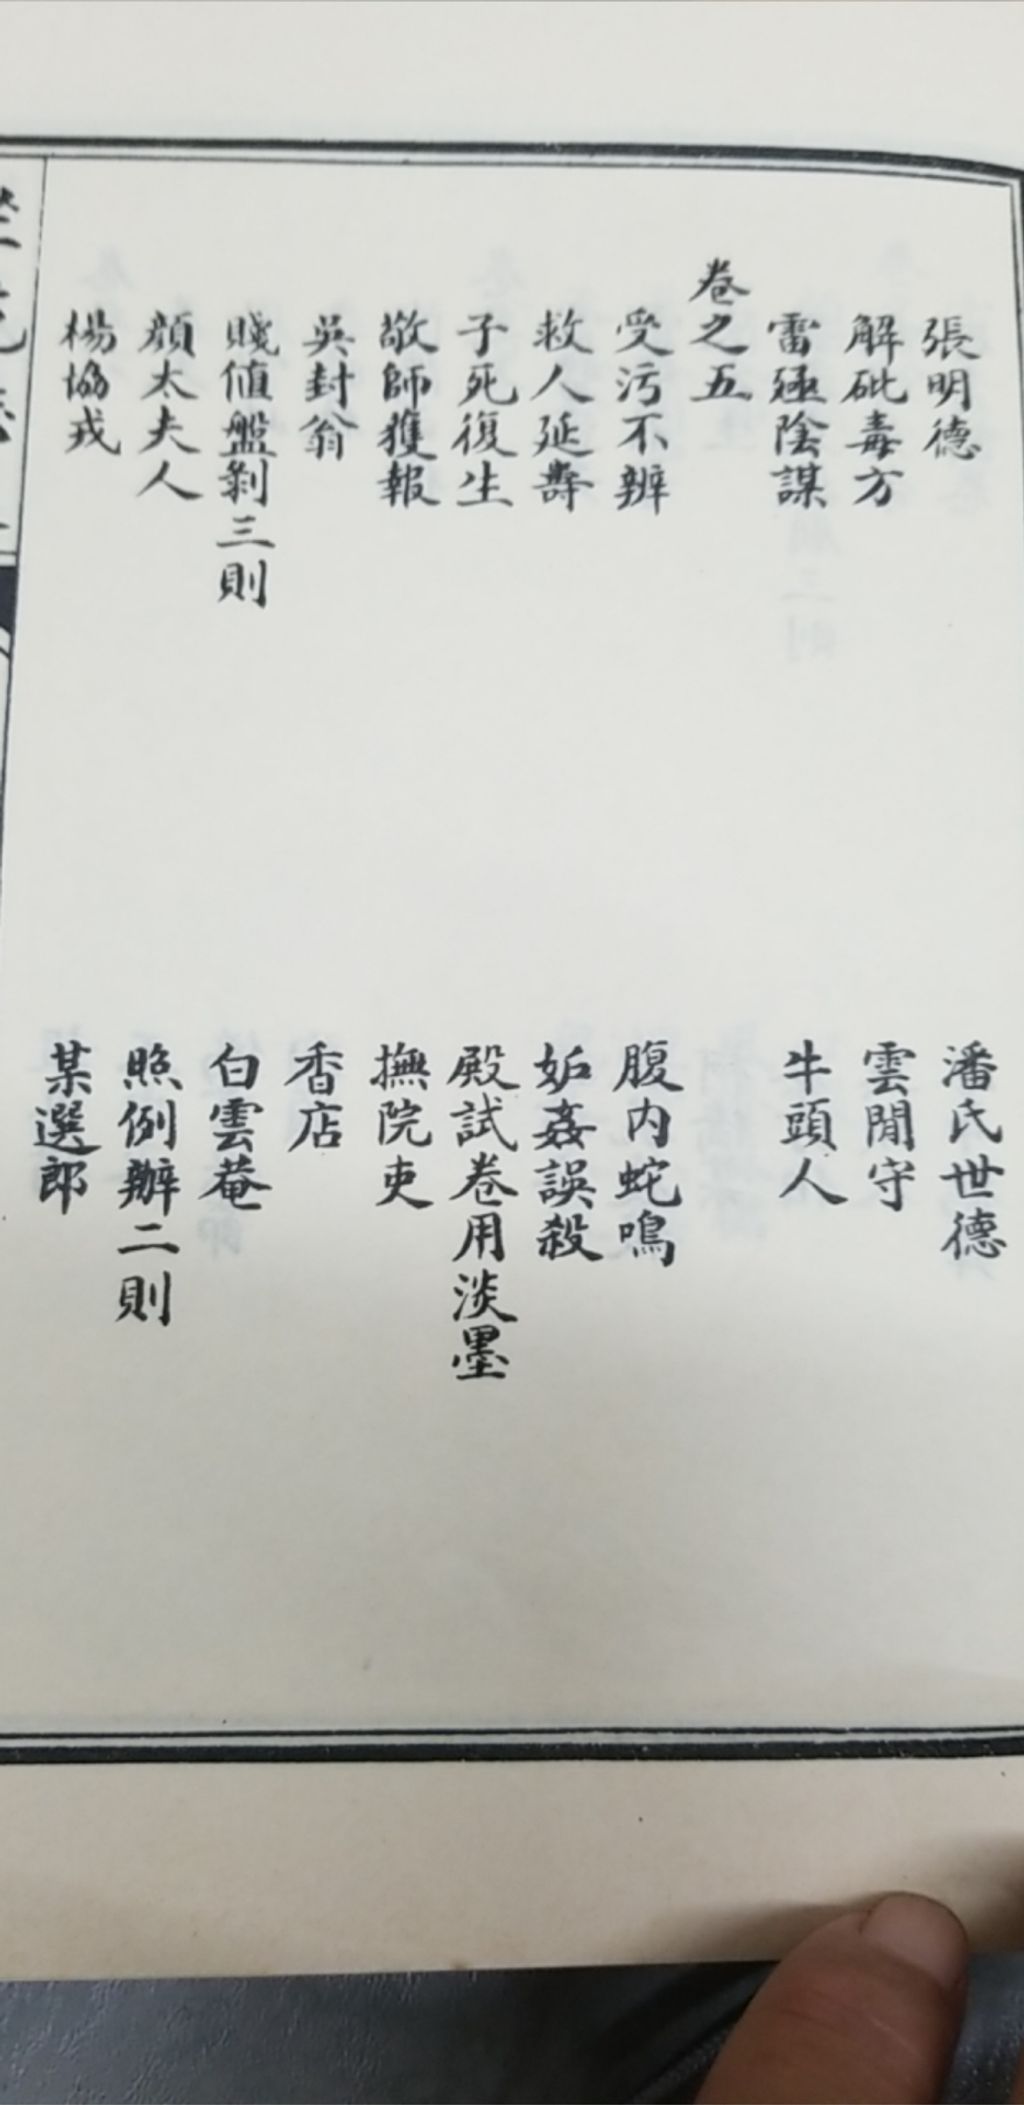 張明德
潘氏世德
解砒毒方
雲閒守
雷殛陰謀
牛頭人
卷之五
受污不辨
腹內蛇鳴
救人延壽
妬姦誤殺
子死復生
殿試卷用淡墨
敬師獲報
撫院吏
吳封翁
香店
賤値盤剝三則
白雲菴
顏太夫人
照例辦二則
楊協戎
某選郎